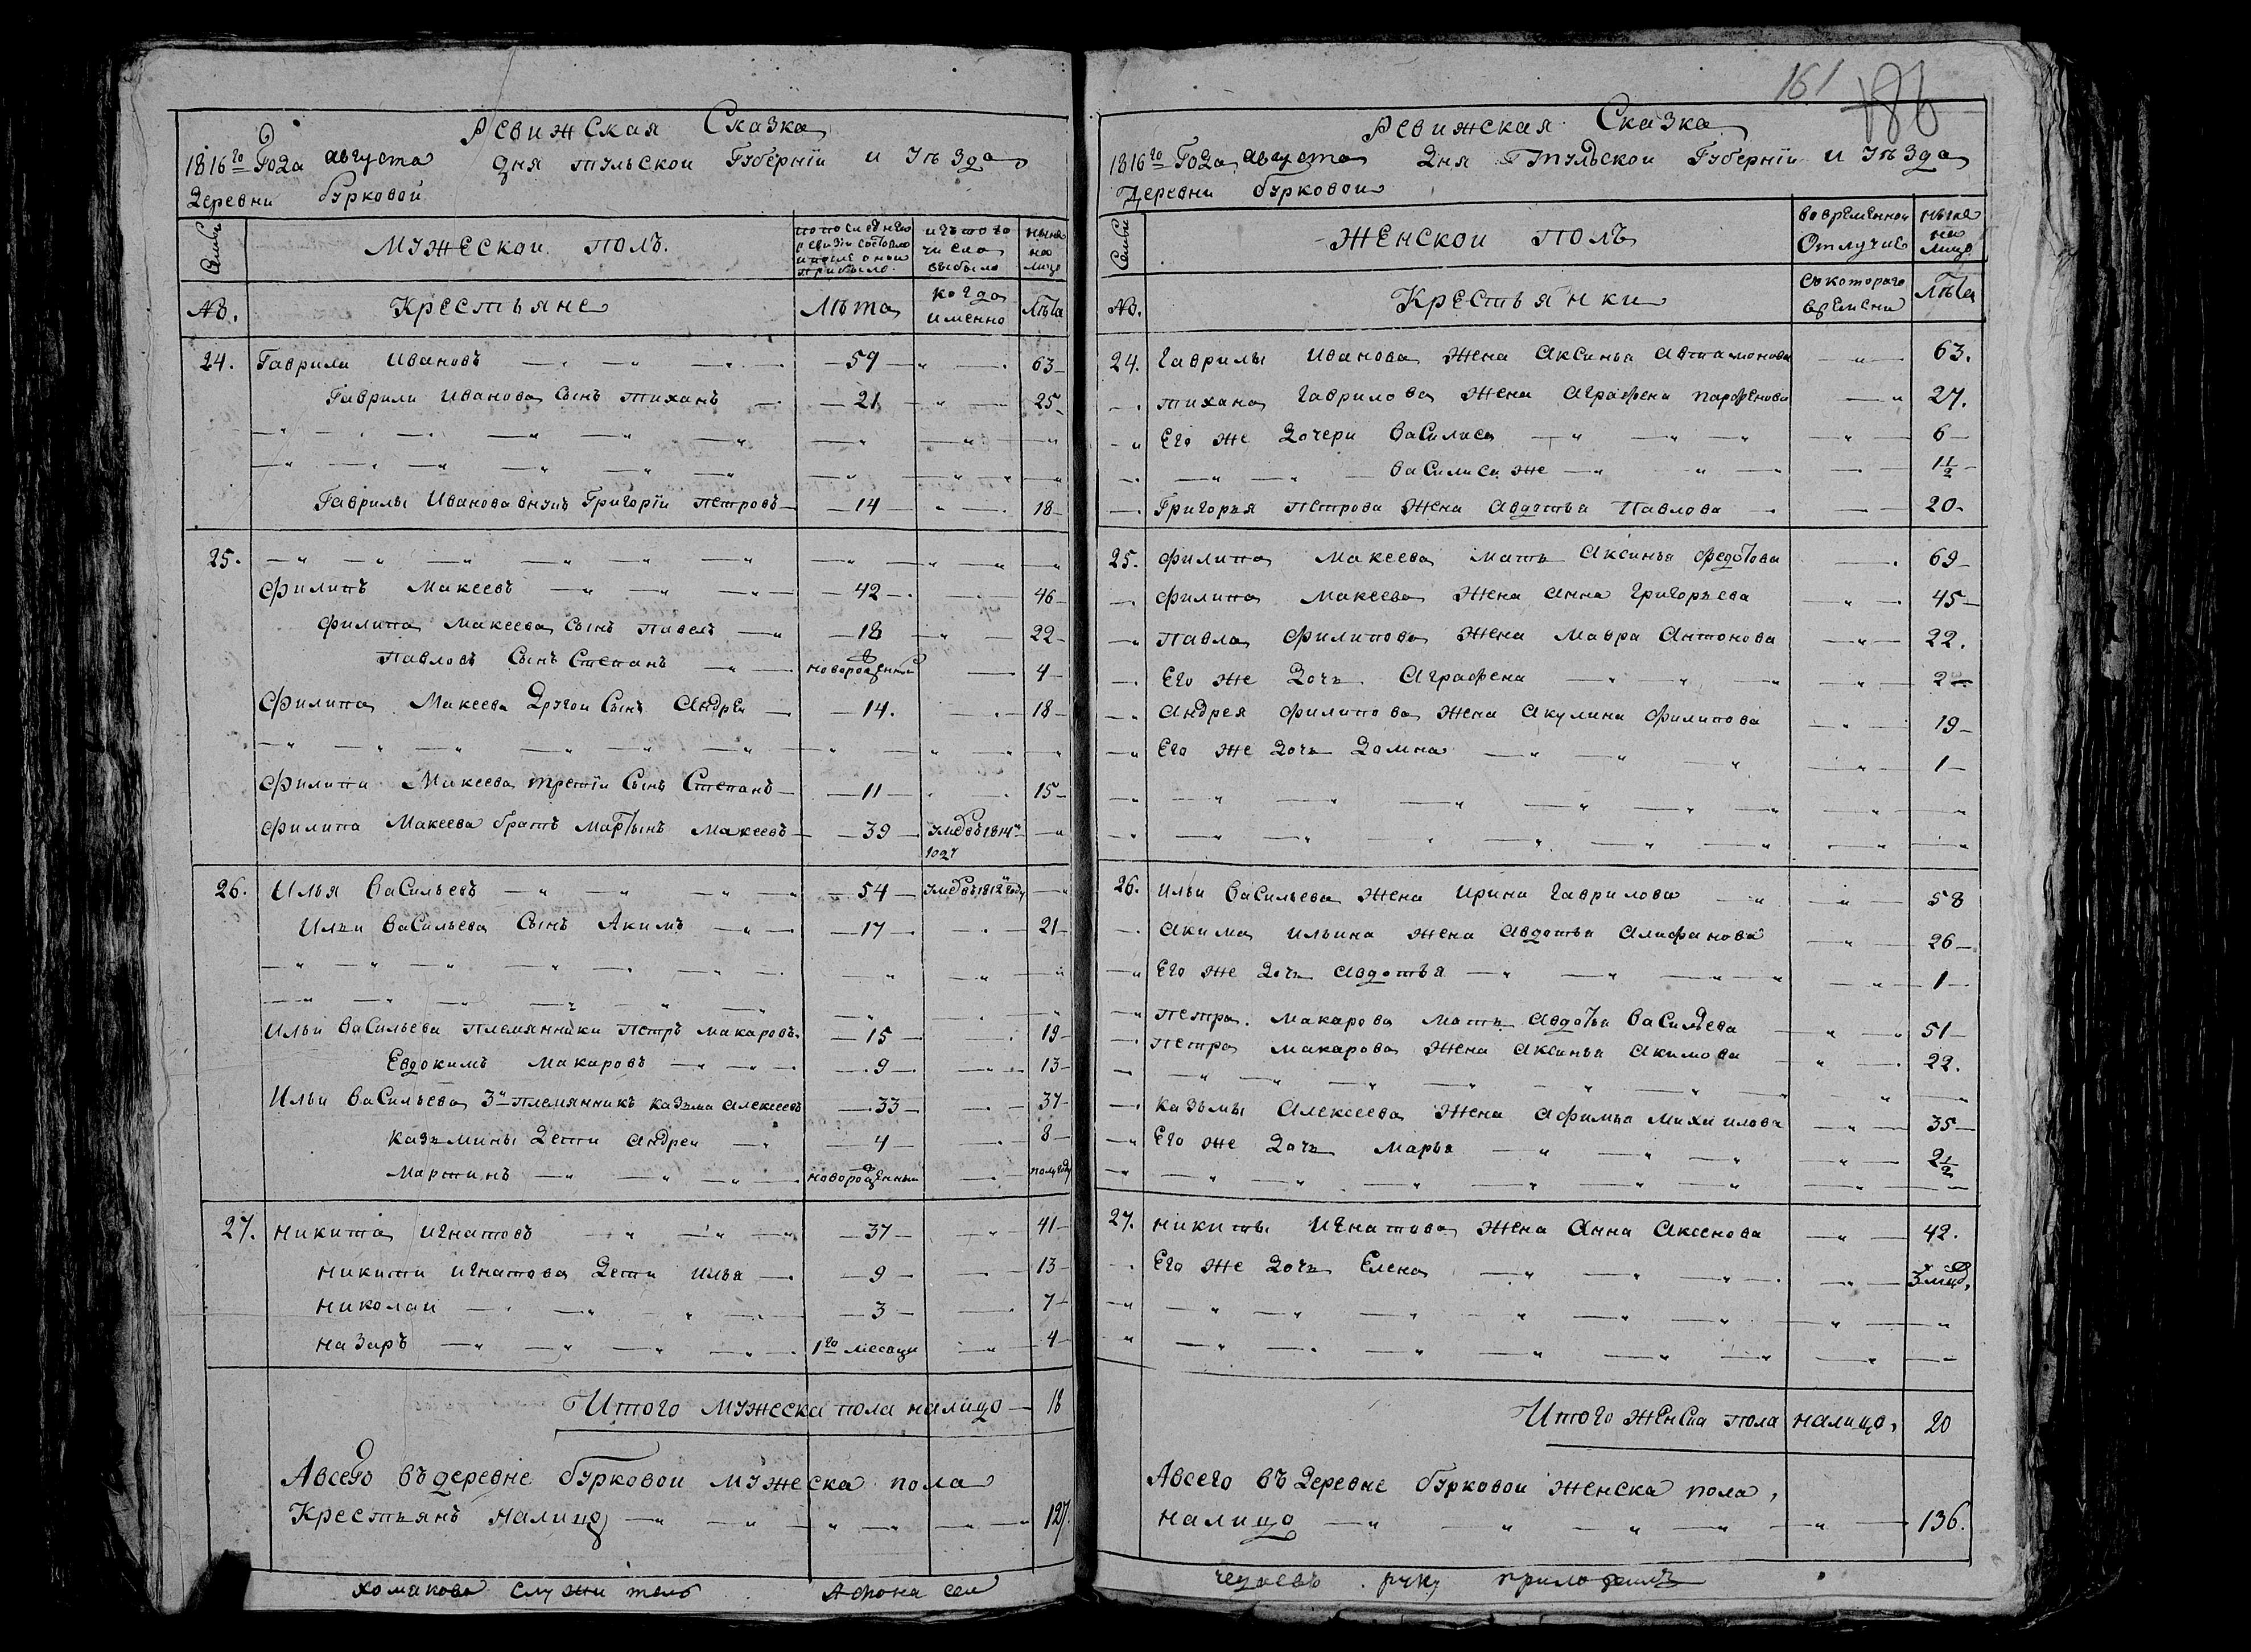 Ревижская Сказка
1816го Года августа дня тульской Губернїи и уѣзда
Деревни бурковой
Семьи
мужеской полъ.
по последней ревизїи состояло и после оной прибыло
изъ того числа выбыло
ныне на лицо
№.
Крестьяне
Лѣта
когда именно
Лѣта
24. Гаврила Ивановъ 59 63
Гаврилы Иванова Сынъ тиханъ 21 25
Гаврилы Иванова внукъ Григорїи петровъ 14 18
25.
филипъ Макеевъ 42 46
филипа Макеева Сынъ павелъ 18 22
Павловъ Сынъ Степанъ новорожденный 4
филипа Макеева Другой Сынъ Андреи 14. 18
филипа Макеева третїи Сынъ Степанъ 11 15
филипа Макеева братъ мартынъ макеевъ 39 умре въ 1814м году
26. Илья Васильевъ 54 умре въ 1812м году
Ильи Васильева Сынъ Акимъ 17 21
Ильи Васильева племянники петръ макаровъ 15 19
Евдокимъ макаровъ 9 13
Ильи Васильева 3й племянникъ казьма алексеевъ 33 37
казьмины дети андреи 4 8
мартинъ новорожденный полугоду
27. никита игнатовъ 37 41
никиты игнатова дети илья 9 13
николаи 3 7
назаръ 1го месеца 4
Итого мужеска пола налицо 18
А всего въ деревне бурковой мужеска пола
Крестьянъ налицо 127.
хомякова служитель Афонасеи
161
186
Ревижская Сказка
1816го Года августа дня тульской Губернїи и уѣзда
Деревни бурковой
Семьи
женской полъ
во временной отлучке
ныне на лицо
№.
Крестьянки
съ котораго времени
Лѣта
24. гаврилы иванова жена аксинья автамонова 63.
тихана гаврилова жена аграфена парфенова 27.
Его же дочери василиса 6
василиса же 1 1/2
Григорья петрова жена авдотья Павлова 20
25. филипа макеева мать аксинья федотова 69
филипа макеева жена анна григорьева 45
павла филипова жена мавра антонова 22.
Его же дочь аграфена 2
андрея филипова жена акулина филипова 19
Его же дочь домна 1
26. ильи васильева жена ирина гаврилова 58
акима ильина жена авдотья алифанова 26
Его же дочь авдотья 1
петра макарова мать авдотья васильева 51
петра макарова жена аксинья акимова 22.
казьмы алексеева жена афимья михаилова 35
Его же дочь марья 2 1/2
27. никиты игнатова жена анна аксенова 42.
Его же дочь елена 3 мцд.
Итого женска пола налицо, 20
А всего въ деревне бурковой женска пола,
налицо 136.
руку приложилъ